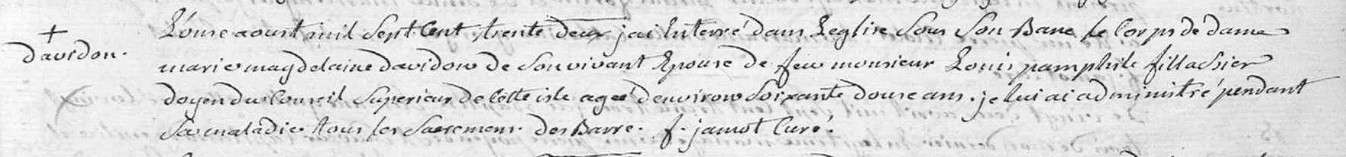 +
Davidon.
L'onze aoust mil Sept Cent trente deux jai Enterré dans Leglise Sous Son Banc le Corps de dame
marie magdelaine davidon de Son vivant Epouse de feu monsieur Louis pamphile fillassier
doyen du Conseil Superieur de Cette isle ageé d'environ Soixante douse ans. je lui ai administré pendant
Sa maladie tous les Sacremens. Des Barre. f. jamot Curé.